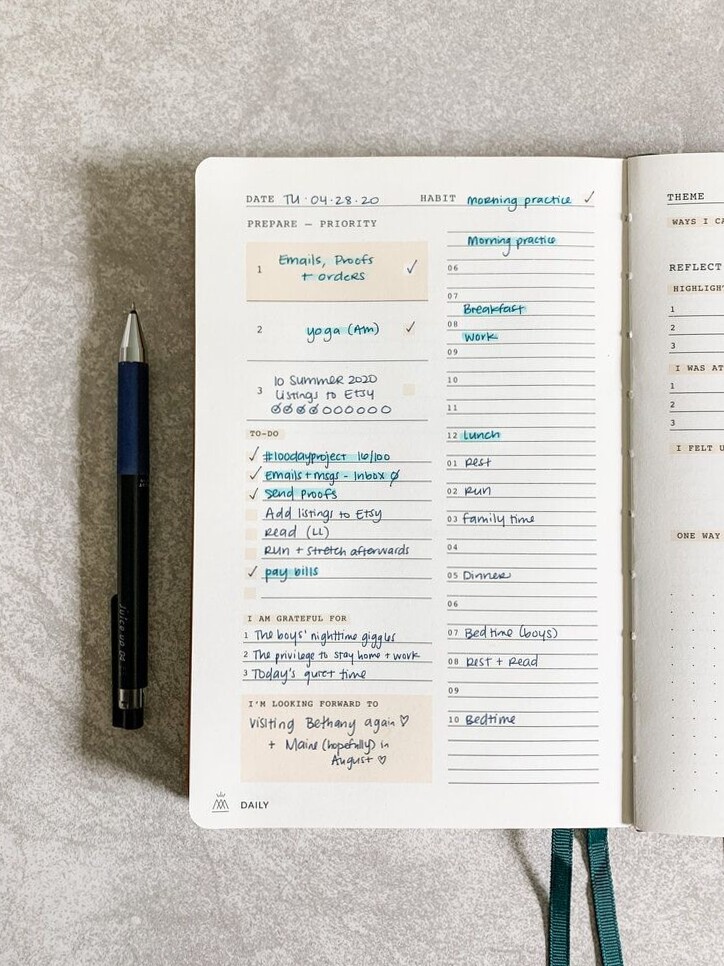 DATE TU·04·28·20
HABIT morning practice ✓
PREPARE — PRIORITY
1 Emails, Proofs ✓
+ orders
2 yoga (AM) ✓
3 10 Summer 2020
Listings to Etsy
TO-DO
✓ #100dayproject 16/100
✓ Emails + msgs - Inbox Ø
✓ Send Proofs
Add listings to Etsy
Read (LL)
Run + stretch afterwards
✓ pay bills
I AM GRATEFUL FOR
1 The boys' nighttime giggles
2 The privilege to stay home + work
3 Today's quiet time
I'M LOOKING FORWARD TO
Visiting Bethany again ♡
+ Maine (hopefully) in
August ♡
DAILY
Morning practice
06
07
Breakfast
08
Work
09
10
11
12 Lunch
01 Rest
02 Run
03 Family time
04
05 Dinner
06
07 Bedtime (boys)
08 Rest + Read
09
10 Bedtime
THEME
WAYS I
REFLECT
1
2
3
I WAS AT
1
2
3
I FELT
ONE WAY